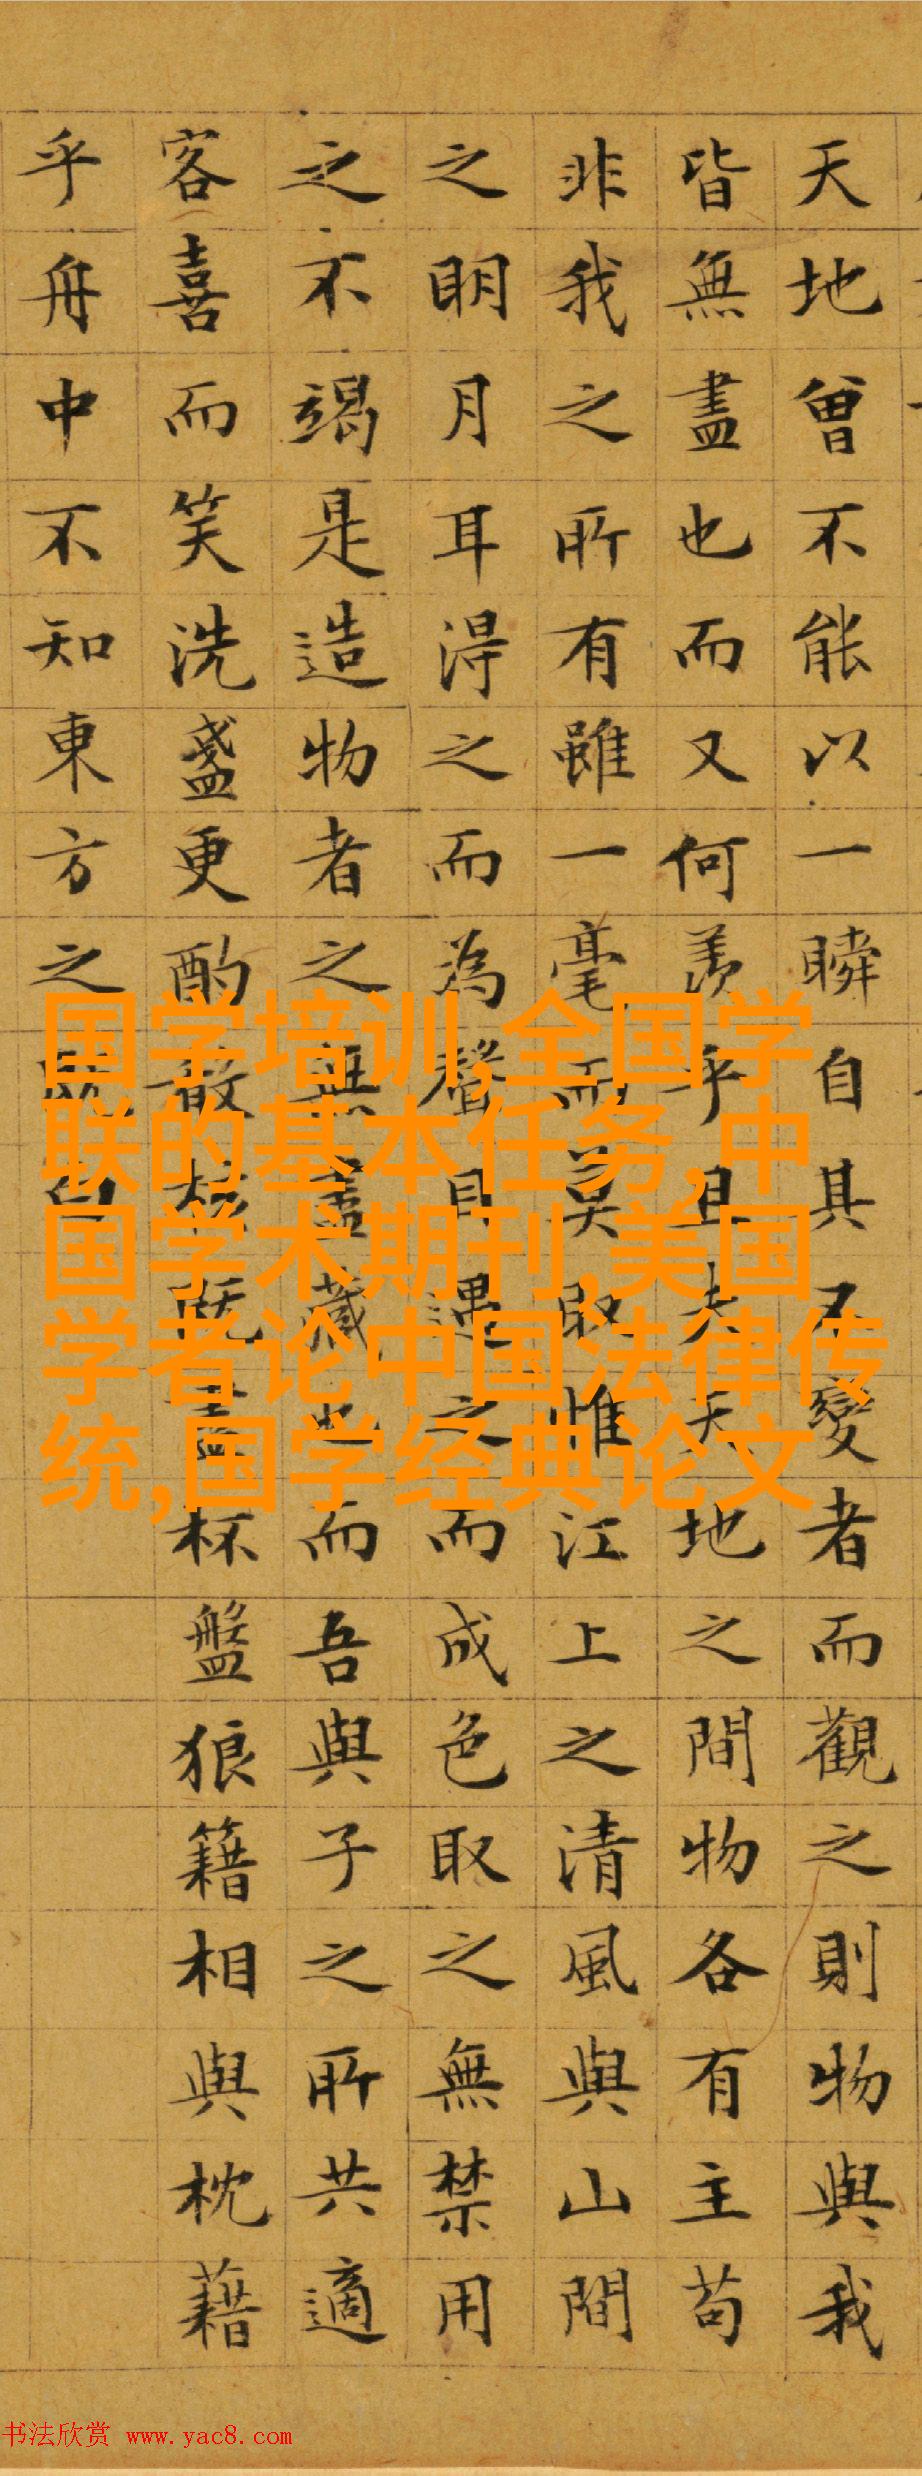 天地曾不能以一瞬自其不變者而觀之則物與我
皆無盡也而又何羨乎且夫天地之間物各有主苟
非我之所有雖一毫而莫取惟江上之清風與山間
之明月耳得之而為聲目遇之而成色取之無禁用
之不竭是造物者之無盡藏也而吾與子之所共適
客喜而笑洗盞更酌殽核既盡杯盤狼籍相與枕藉
乎舟中不知東方之既白
国学培训,全国学
联的基本任务,中
国学术期刊,美国
学者论中国法律传
统,国学经典论文
书法欣赏 www.yac8.com